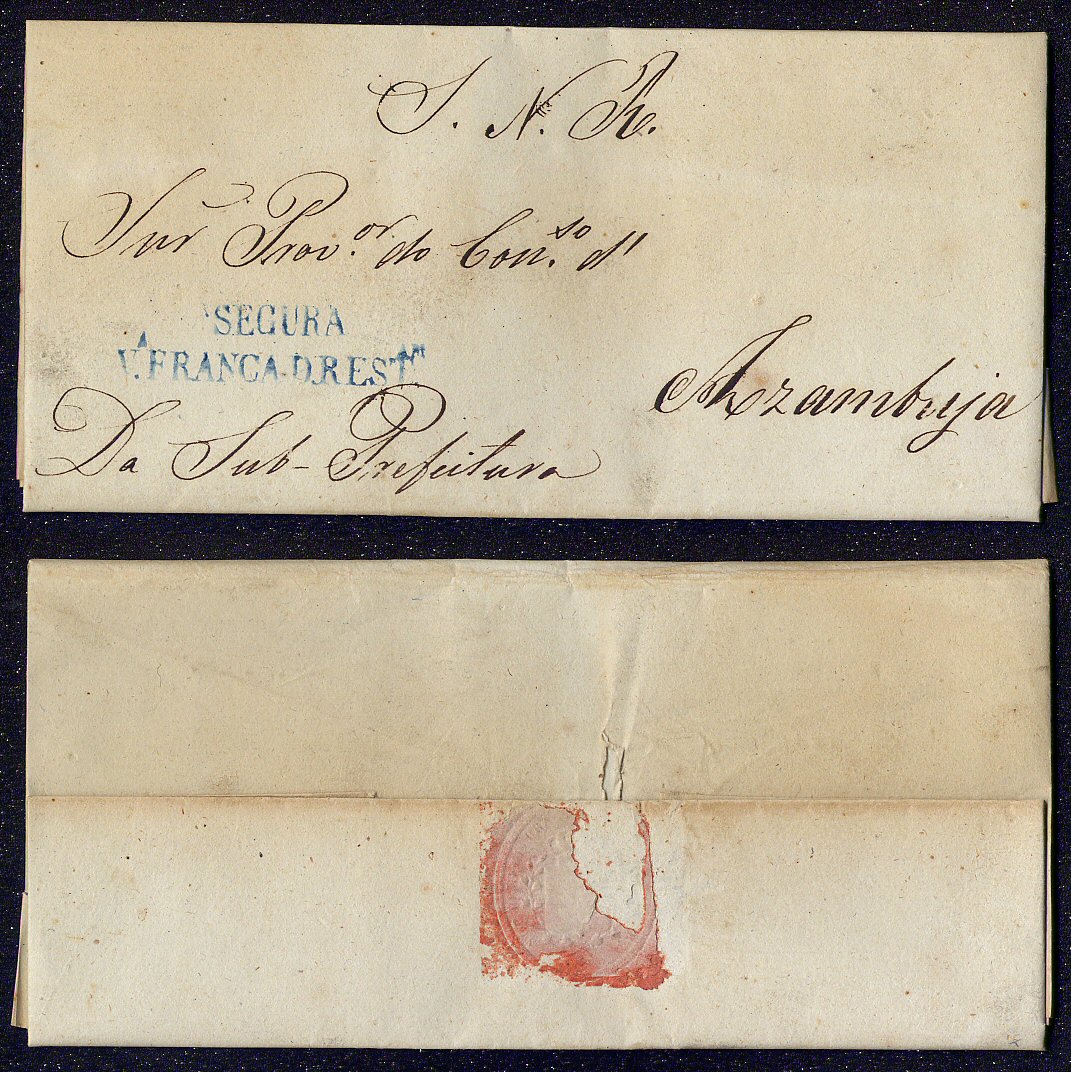 S. N. R.
Snr Prov.or do Con.so d'
SEGURA
V.A FRANCA.D.REST.AM
Azambuja
Da Sub-Prefeitura